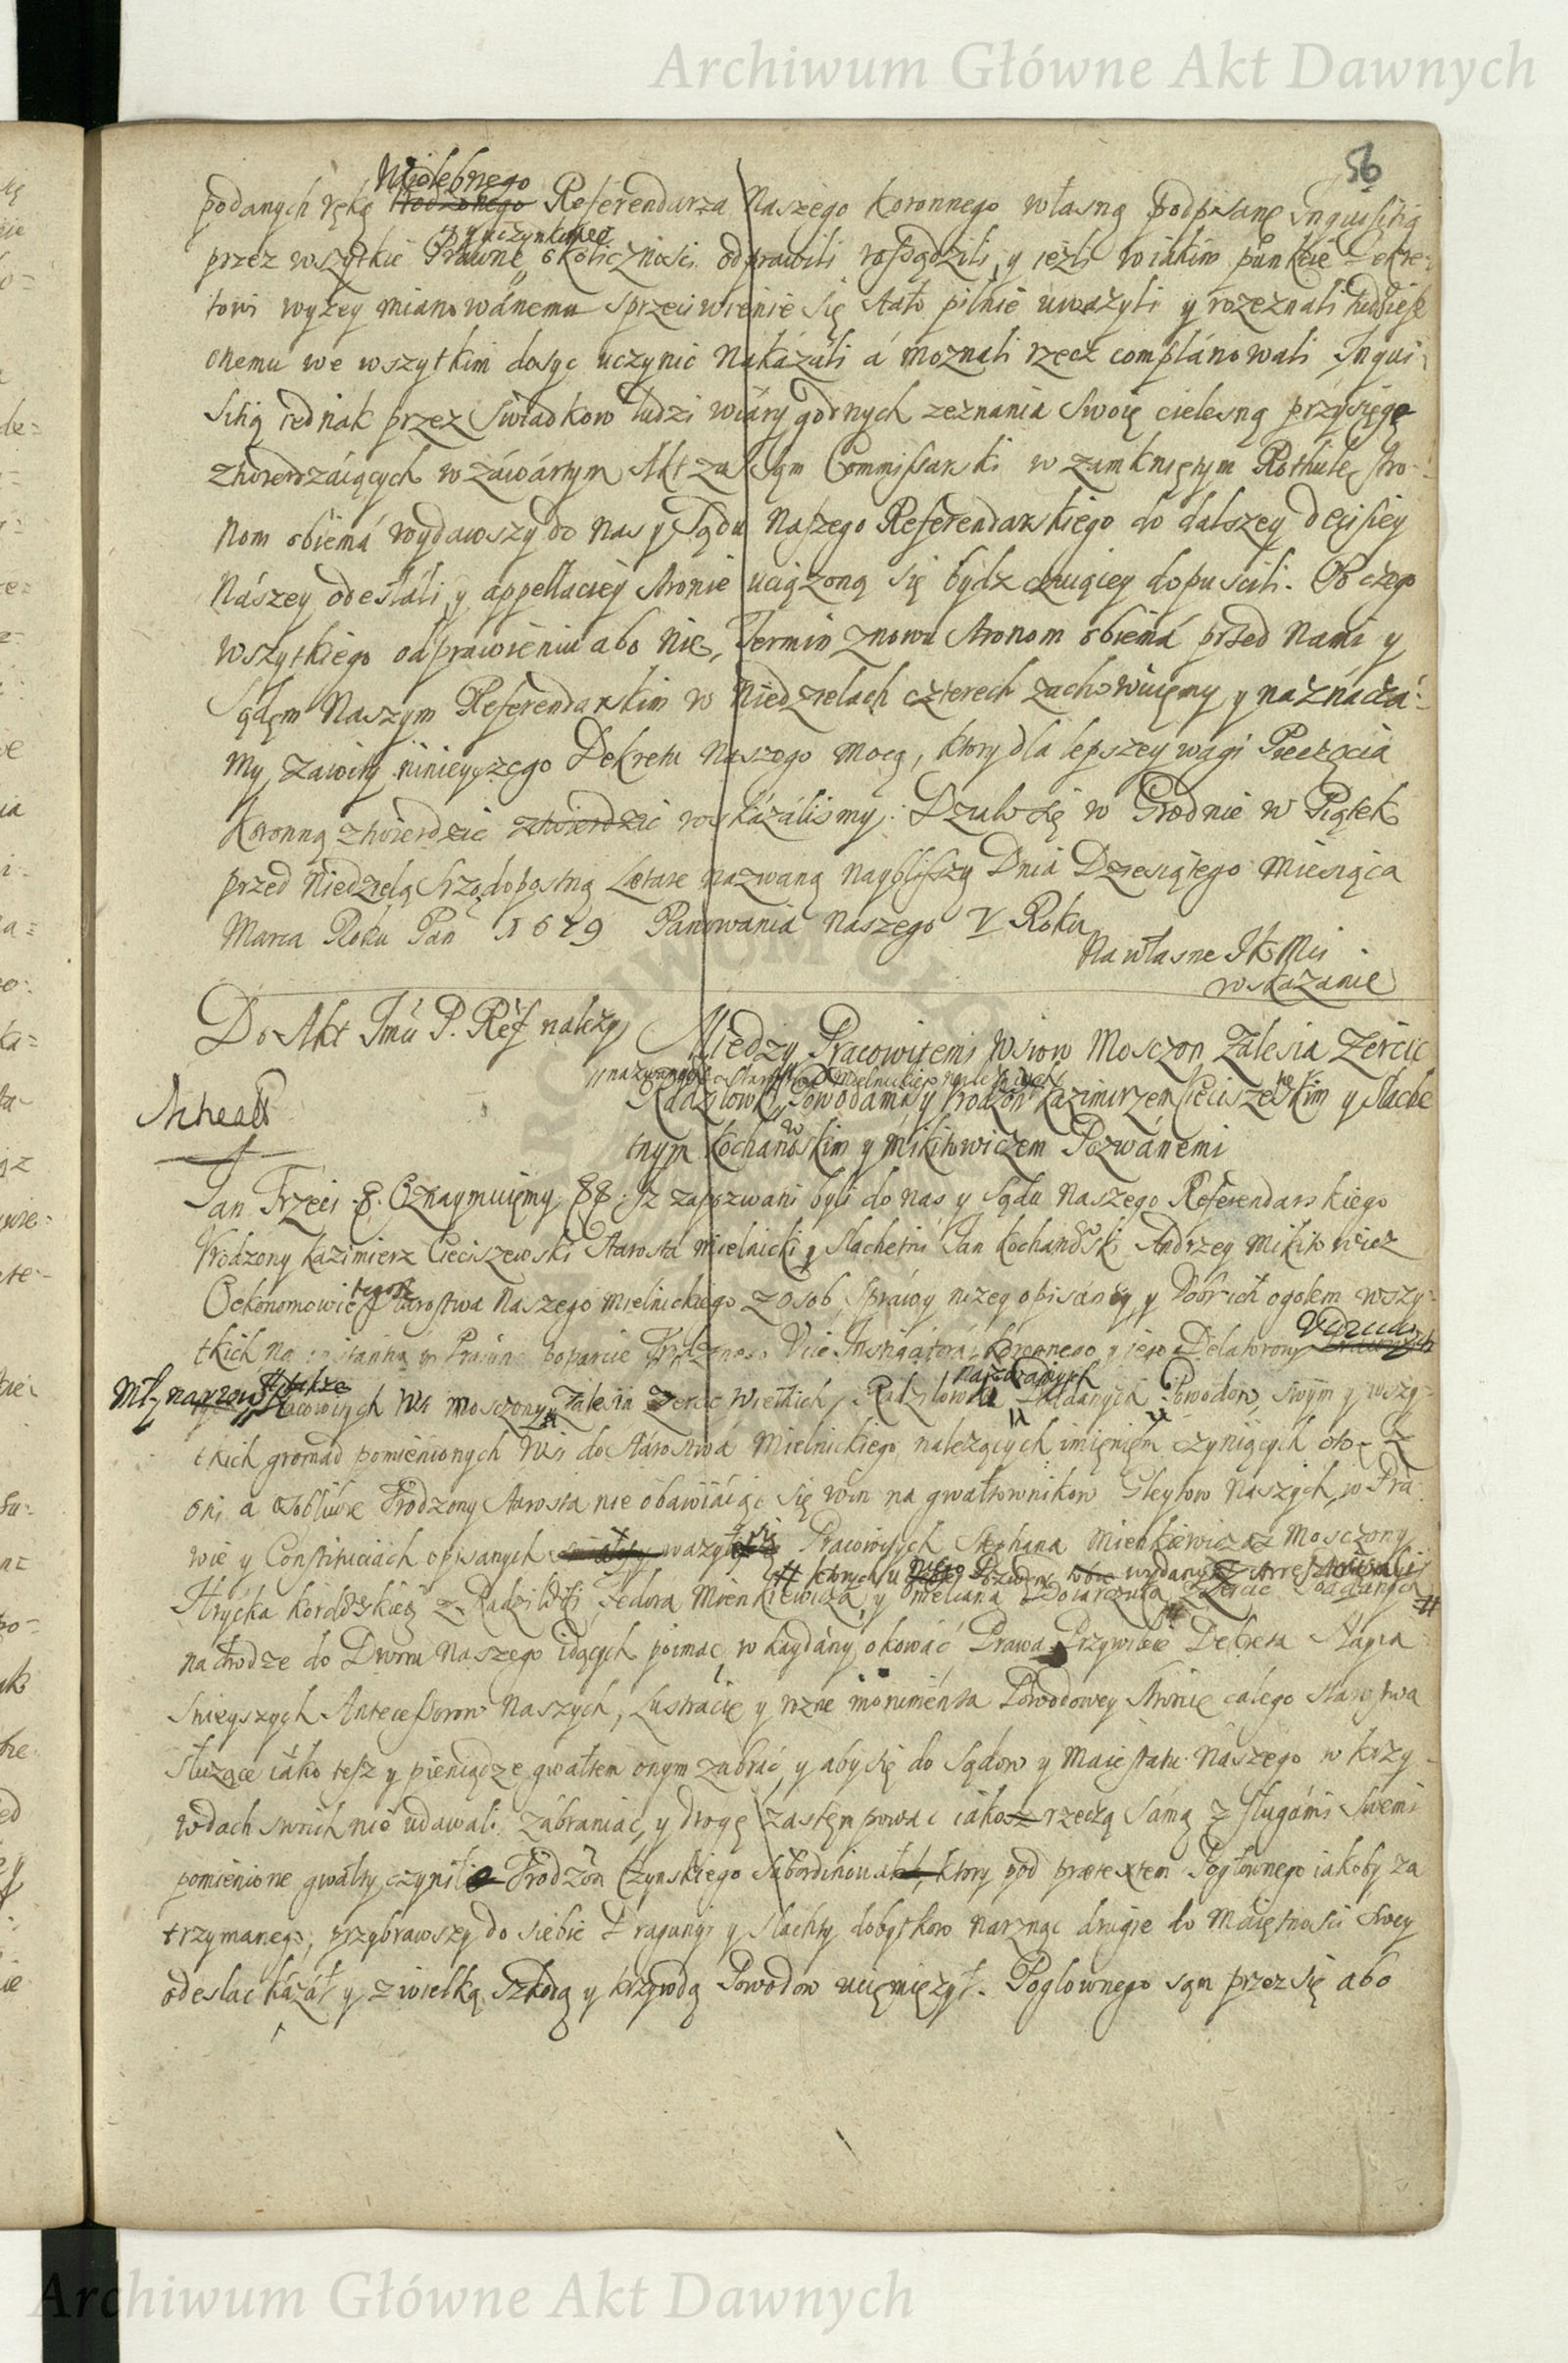 Archiwum Główne Akt Dawnych
56
Wielebnego
podanych ręką Urodzonego Referendarza Naszego Koronnego własną podpisane Inquisitią
y uczynkowe
przez wszytkie Prawne okoliczności odprawili rossądzili, y ieżli w iakim punkcie Dekre-
towi wyżey mianowánemu sprzeciwienie się stało pilnie uważyli y rozeznali tudziesz
onemu we wszytkim dosyc uczynic nakázáli á moznali rzecz complánowali Inqui-
sitią iednak przez Swiadkow ludzi wiáry godnych zeznania swoię cielesną przysięgą
ztwierdzáiących w záwártym Akt zaś sąm Commissarski w zamkniętym Rothule stro-
nom obiemá wydawszy do Nas y Sądu Naszego Referendarskiego do dalszey decisiey
Nászey odesłáli, y appellaciey stronie uciązoną się bydz czuiącey dopuscili. Po czego
wszytkiego odprawieniu abo nie, Termin znowu stronom obiemá przed Nami y
Sądem Naszym Referendarskim w Niedzielach czterech zachowuięmy y náznáczá-
my zawity ninieyszego Dekretu naszego mocą, ktory dla lepszey wagi Pieczęcią
Koronną ztwierdzic ztwierdzic roskázálismy. Działo się w Grodnie w Piątek
przed Niedzielą Srzodopostną Lætare nazwaną nayblisszy Dnia Dziesiątego Miesiąca
Marca Roku Pan 1679 Panowania Naszego V Roku
Na własne JKMsci
wskazanie
Do Akt Jmci P. Ref należy
Między Pracowitemi Wsiow Mosczon Zalesia Zercic
nazwanych Starostwa Mielnickiego należących
Radziłowki, Powodami y Urodzon Kazimirzem Cieciszewskim y Slache
tnym Kochanowskim y Mikitowiczem Pozwánemi
Jan Trzeci &. Oznaymuięmy &&. Iż zapozwani byli do nas y Sądu Naszego Referendarskiego
Urodzony Kazimierz Cieciszewski Starosta Mielnicki y Slachetni Jan Kochanowski Andrzey Mikitowicz
tegosz
Oekonomowie Starostwa Naszego Mielnickiego z osob, sprawy niżey opisáney y Dobr ich ogołem wszy-
tkich na instantią y Prawne poparcie Urodzonego Vice Instigatora Koronnego y iego Delatorow
Młynarzow także
nazwanych
Pracowitych Wsi Mosczony, Zalesia Zercic Wielkich, Radziłowka Poddanych Powodow, swym y wszy-
tkich gromad pomienionych Wsi do Stárostwá Mielnickiego należących imięnięm czyniących oto Iż
oni a osobliwie Urodzony Starosta nie obawiáiąc się win na gwałtownikow Gleytow Naszych, w Pra
wie y Constituciách opisanych ważył się Pracowitych Stephana Mienkiewicza z Mosczony
Hrycka z Radziłowki, Fedora Mienkiewicza, y z Zercic Poddanych
na drodze do Dworu Naszego idących poimac, w kaydány okowáć Prawa Przywileie Dekreta Nayia-
snieyszych Antecessorow Naszych, Lustracie y rozne monumenta Powodowey stronie całego starostwa
słuzące iáko tesz y pieniądze gwałtem onym zabrać, y aby się do Sądow y Maiestatu Naszego w krzy-
wdach swoich nie udawali zabraniac, y drogę zastęmpowac iakosz rzeczą sámą z sługámi swemi
pomienione gwałty czynili Urodzon Czynskiego Subordinował, ktory pod prætextem Pogłownego iakoby za
trzymanego, przybrawszy do siebie Draganyi y slachty dobytkow narznąc drugie do Maiętnosci swey
odeslac kázáł y z wielką szkodą y krzywdą Powodow uciemięzył. Poglownego sąm przez się abo
Archiwum Główne Akt Dawnych